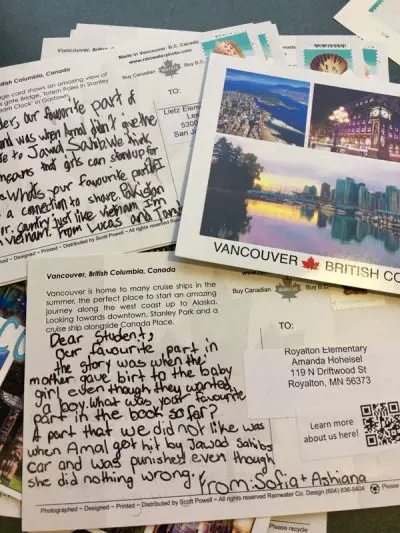 Made in Vancouver, B.C. Canada
www.rainwaterphoto.com
Vancouver, British Columbia
British Columbia, Canada
card shows an amazing view of
Gate Bridge, Totem Poles in Stanley
Clock' in Gastown.
Buy Canadian
Buy B.C.
TO:
our favourite part of
and was when Amal didn't give the
to Jawad Sahib. We think
means that girls can stand up for
What's your favourite part? I
a connection to share. Pakistan
country just like Vietnam. I'm
Vietnam. From Lucas and
Printed ~ Distributed by Scott Powell ~ All rights
Lietz Elem
5300
San J
VANCOUVER
BRITISH CO
Vancouver, British Columbia, Canada
Vancouver is home to many cruise ships in the
summer, the perfect place to start an amazing
journey along the west coast up to Alaska.
Looking towards downtown, Stanley Park and a
cruise ship alongside Canada Place.
Buy Canadian
TO:
Dear Student,
Our favourite part in
the story was when the
mother gave birt to the baby
girl even though they wanted
a boy. What was your favourite
part in the book so far?
A part that we did not like was
when Amal got hit by Jawad Sahibs
car and was punished even though
she did nothing wrong. From: Sofia + Ashiana
Royalton Elementary
Amanda Hoheisel
119 N Driftwood St
Royalton, MN 56373
Learn more
about us here!
Photographed ~ Designed ~ Printed ~ Distributed by Scott Powell ~ All rights reserved Rainwater Co. Design (604) 836-0404
Please
Please recycle